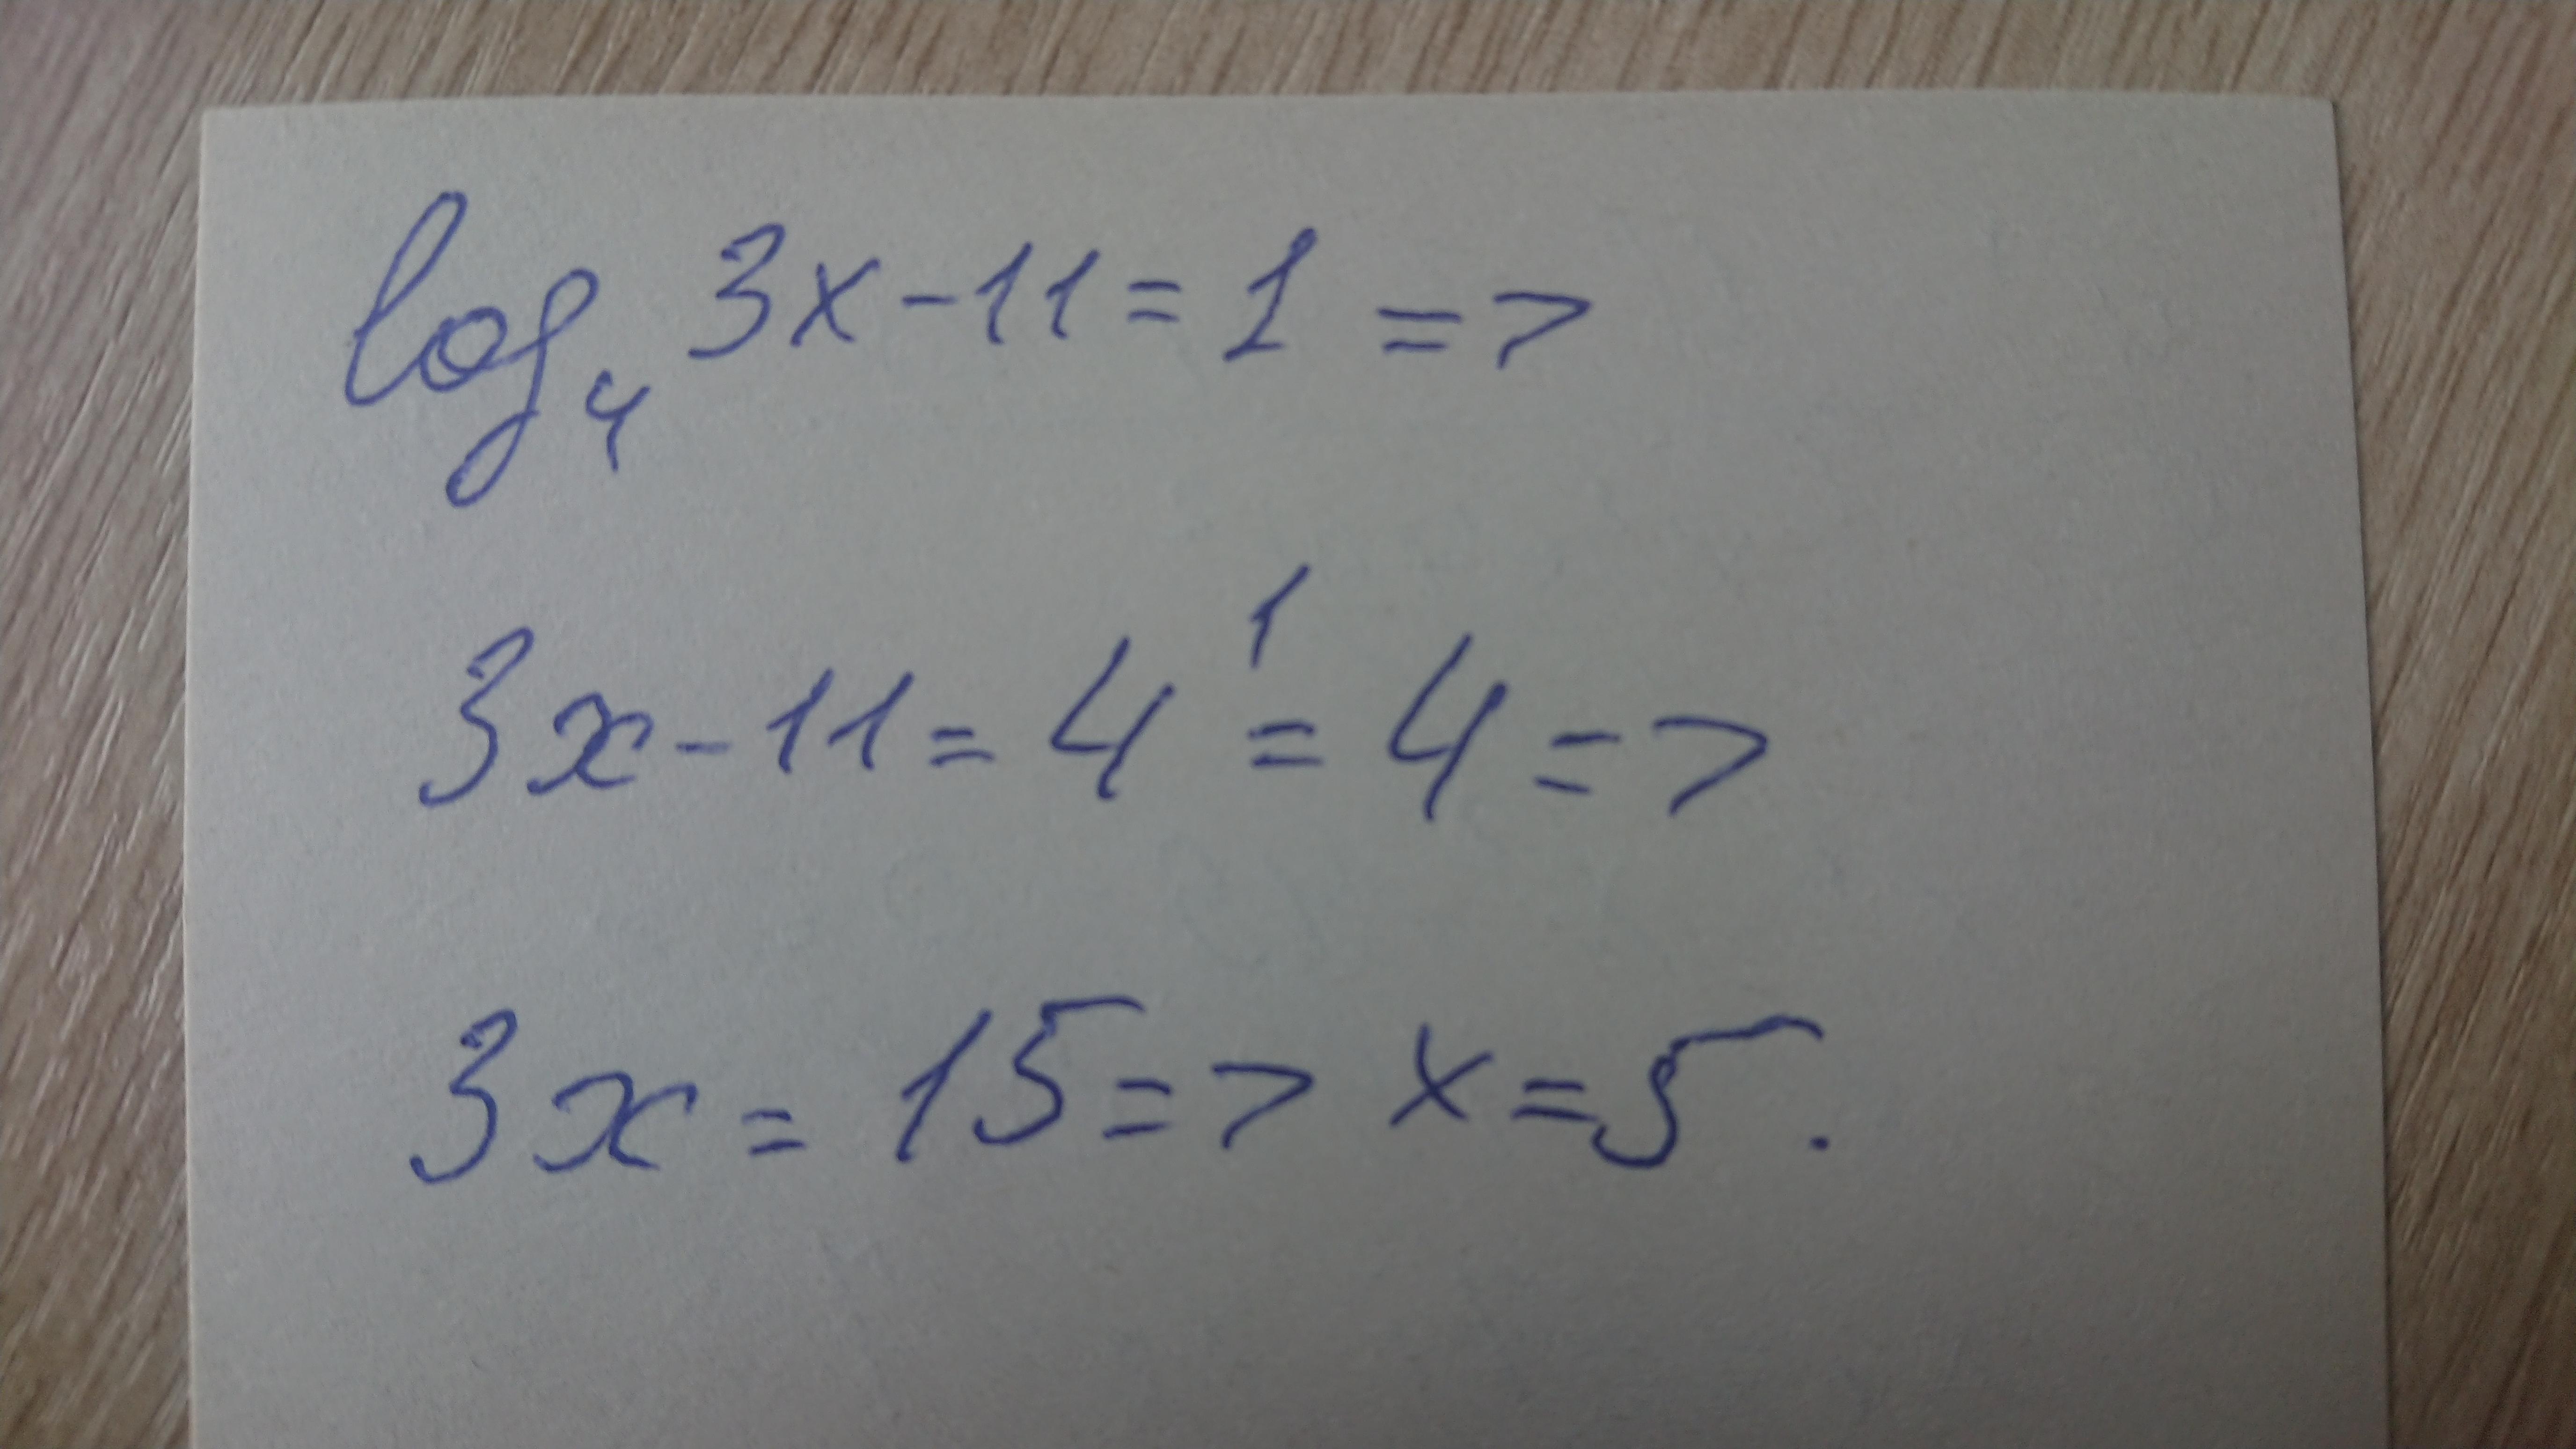 log₄ 3x-11=1 =>
3x-11=4¹=4=>
3x=15=> x=5.